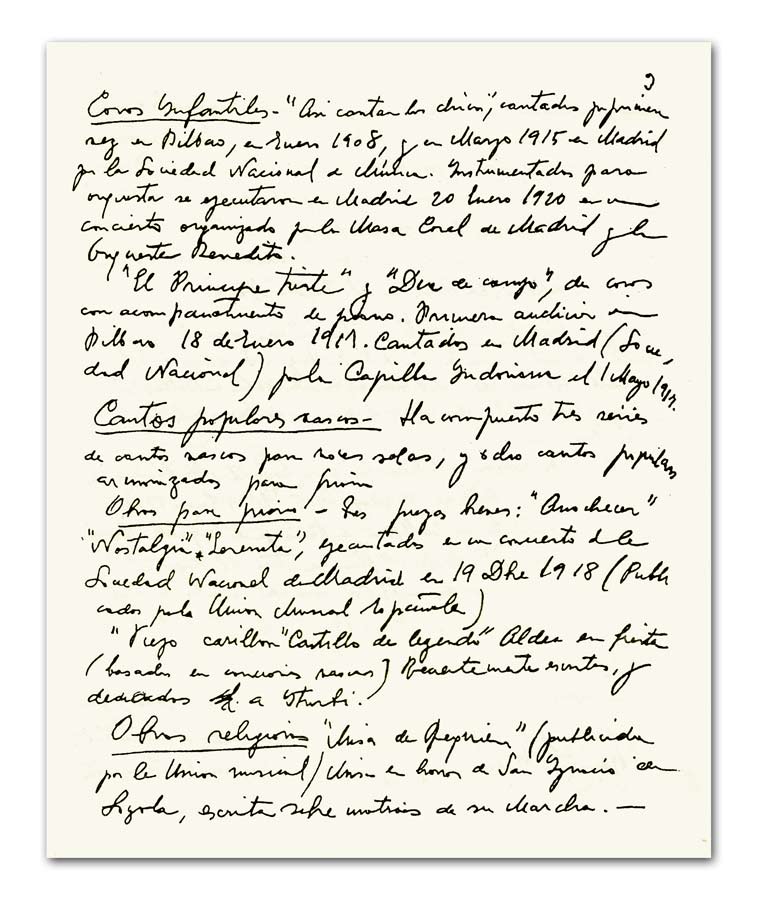 3
Coros Infantiles - "Así cantan los chicos", cantados por primera
vez en Bilbao, en Enero 1908, y en Marzo 1915 en Madrid
por la Sociedad Nacional de Música. Instrumentados para
orquesta se ejecutaron en Madrid 20 Enero 1920 en un
concierto organizado por la Masa Coral de Madrid y la
Orquesta Benedito.
"El Principe triste" y "Dia de campo", de coros
con acompañamiento de piano. Primera audición en
Bilbao 18 de Enero Cantados en Madrid (Socie,
dad Nacional) por la Capilla el 1 Mayo
Cantos populares vascos - Ha compuesto tres series
de cantos vascos para voces solas, y ocho cantos populares
armonizados para piano
Obras para piano - Tres piezas breves: "Anochecer"
"Nostalgia", "Serenata", ejecutados en un concierto de la
Sociedad Nacional de Madrid en 19 Dbre 1918 (Publi
cados por la Union Musical Española)
"Viejo carillon" "Castillo de leyenda" Aldea en fiesta
(basados en canciones vascas) Recientemente escritas, y
dedicados a Iturbi.
Obras religiosas "Misa de Requiem" (publicada
por la Union musical) Misa en honor de San Ignacio de
Loyola, escrita sobre motivos de su Marcha. —